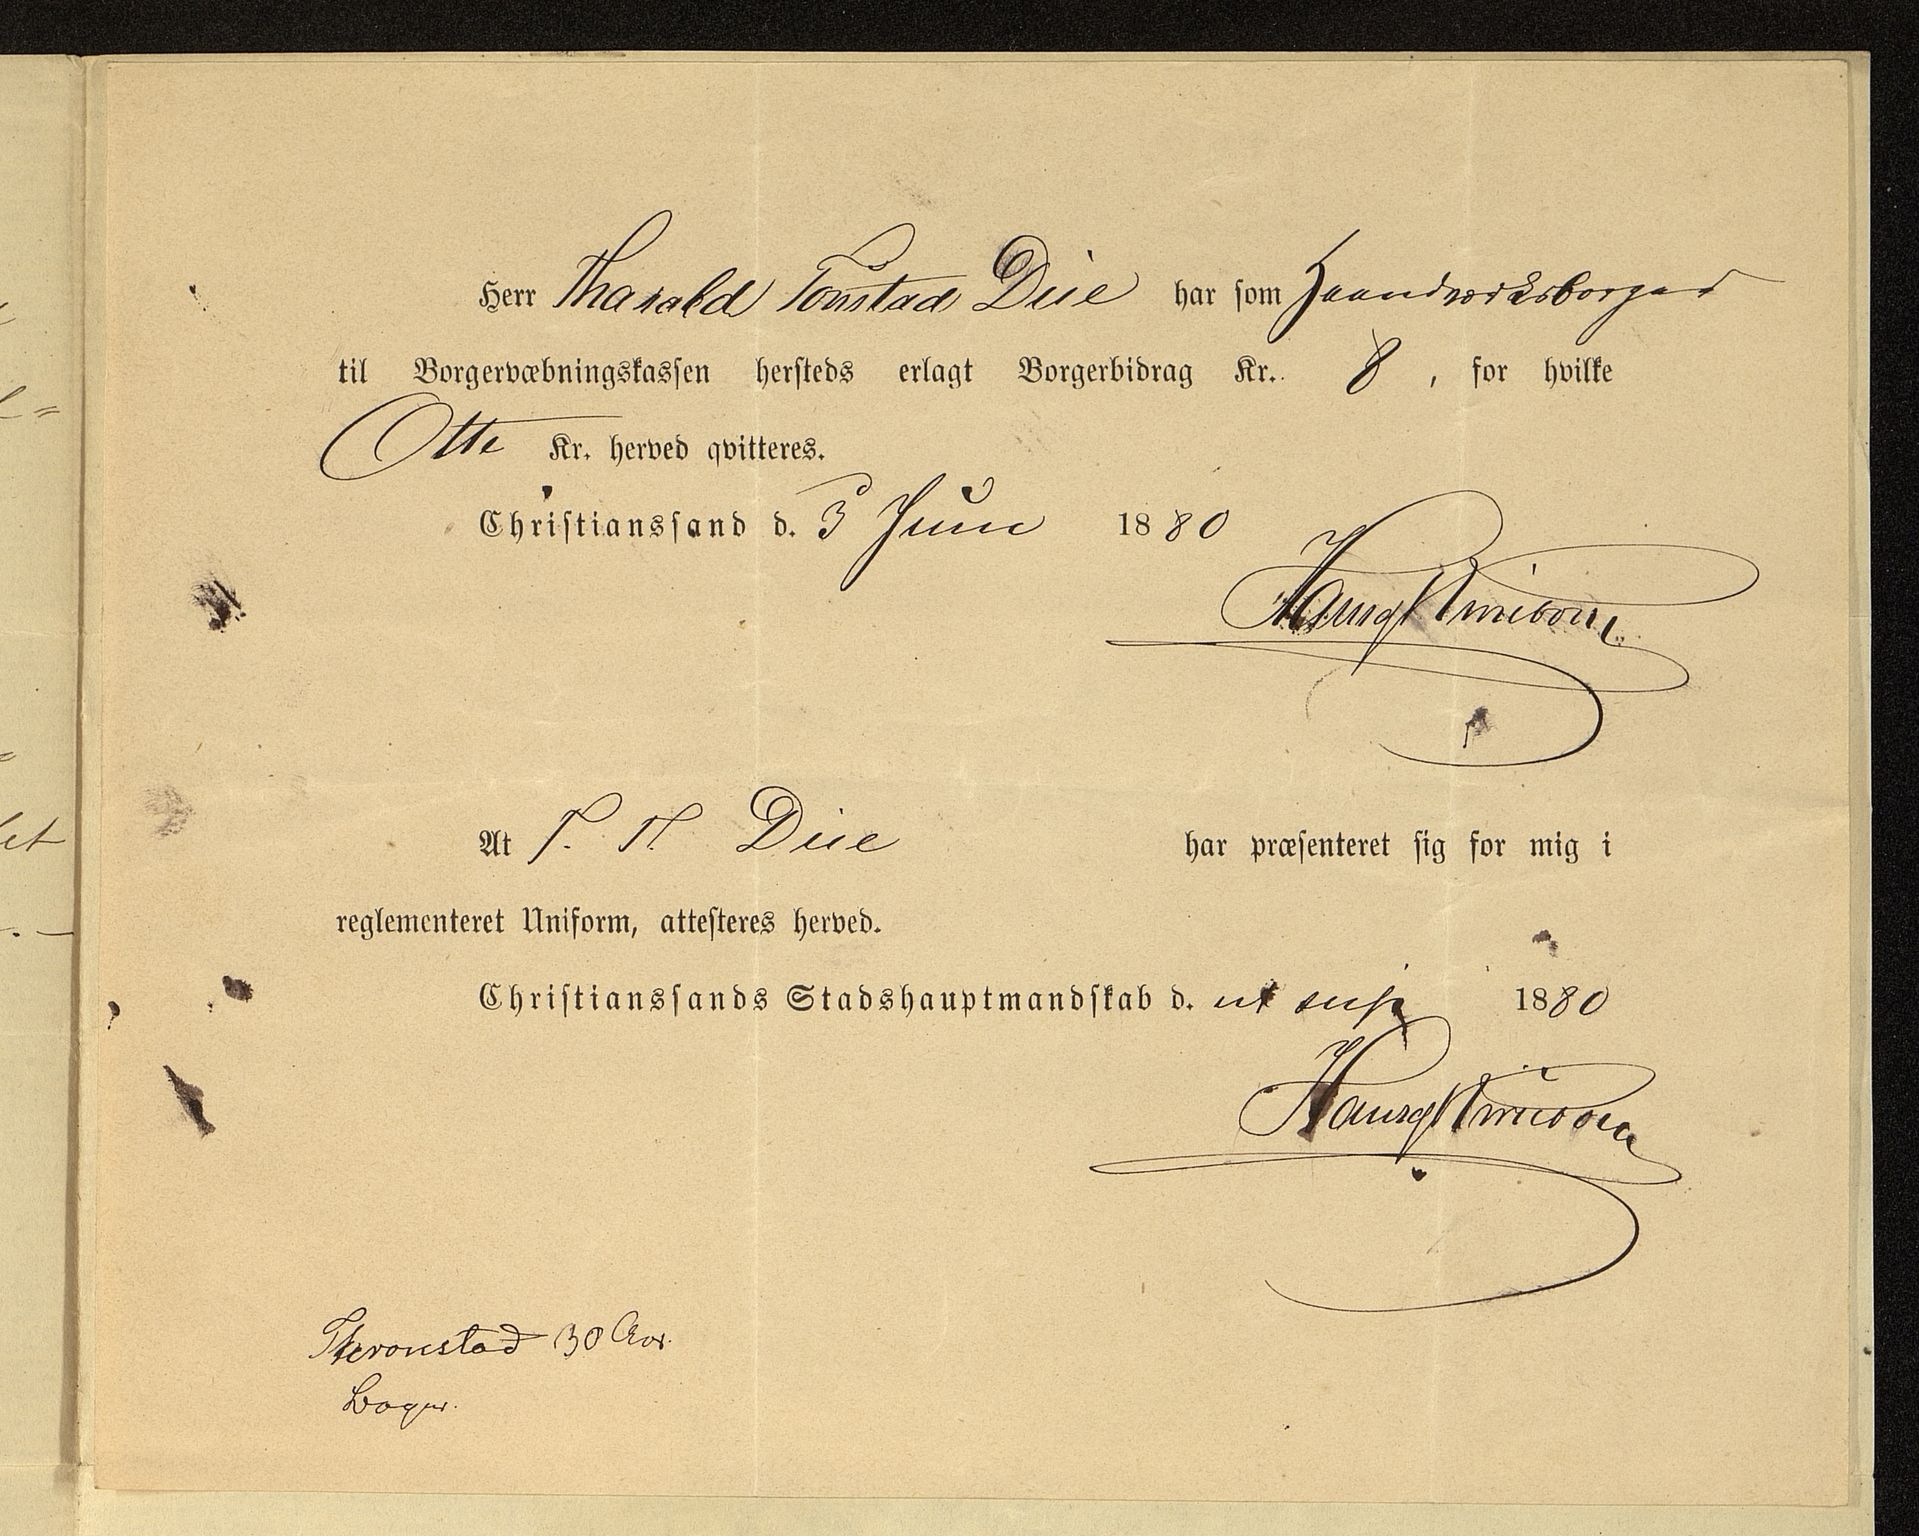 Herr Tharald Tonstad Due har som Haandværksborger
til Borgervæbningskassen hersteds erlagt Borgerbidrag Kr. 8, for hvilke
Otte Kr. herved qvitteres.
Christianssand d. 3 Juni 1880
At T. T. Due har præsenteret sig for mig i
reglementeret Uniform, attesteres herved.
Christianssands Stadshauptmandskab d. ut sup 1880
30 Aar.
Bager.